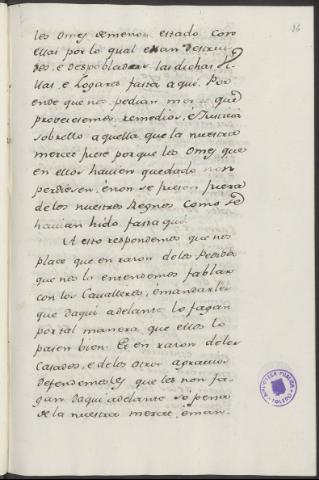 36
los Omes de menor estado con
ellas por lo qual eran destrui-
dos, e despoblados las dichas Vi-
llas, e Logares fasta aqui. Por
ende que nos pedian merced que
proveiesemos remedio, é Justicia
sobrello aquella que la nuestra
merced fuese porque los Omes que
en ellos havien quedado non
perdiesen, é non se fuesen fuera
de los nuestros Regnos como se
havian hido fasta qui.
A esto respondemos que nos
place que en razon de los Pedidos
que nos lo entendemos fablar
con los Cavalleros, é mandarles
que daqui adelante lo fagan
por tal manera que ellos lo
pasen bien. Et en razon de los
Casados, e de los otros agravios
defendemosles que los non fa-
gan daqui adelante só pena
de la nuestra merced, é man-
BIBLIOTECA PUBLICA
TOLEDO